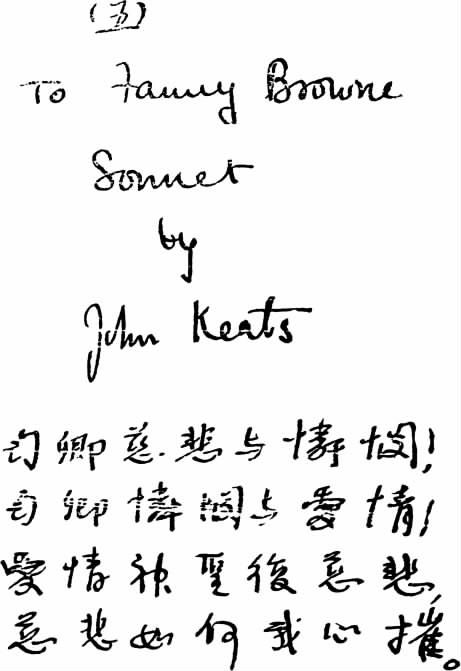 (五)
To Fanny Browne
Sonnet
by
John Keats
匄卿慈悲与憐憫!
匄卿憐憫与愛情!
愛情神聖後慈悲,
慈悲如何我心摧。